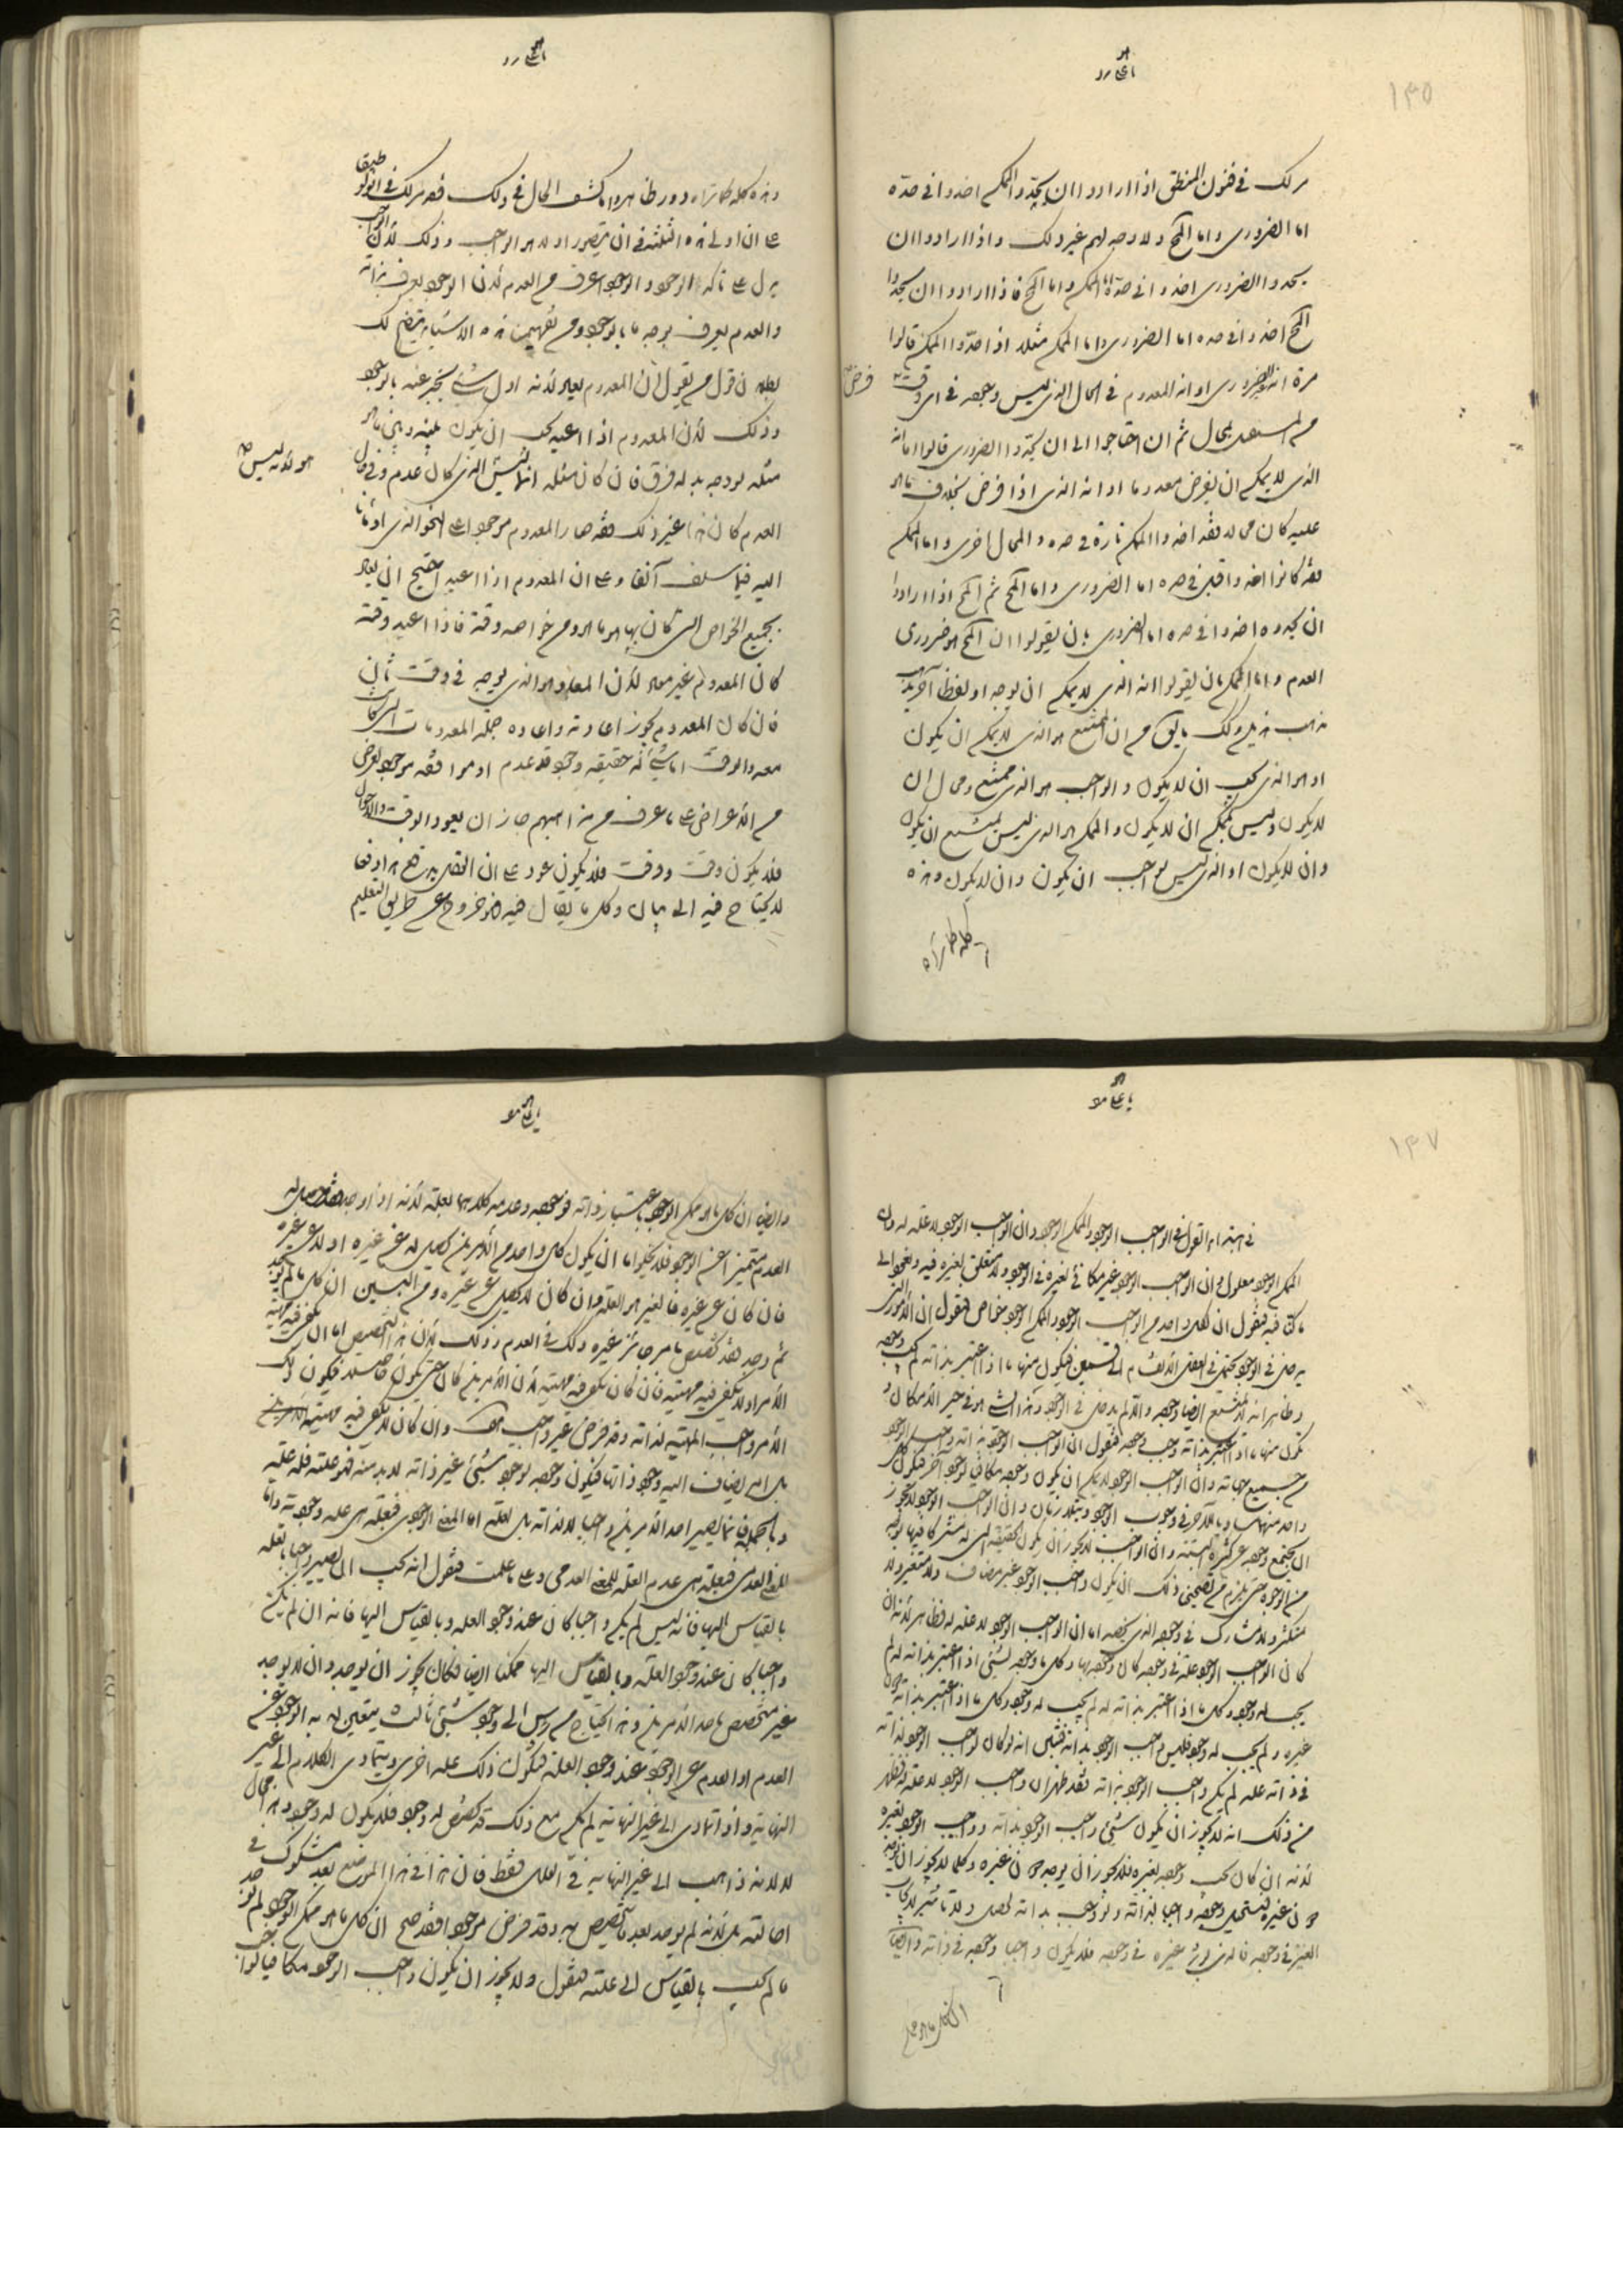 ١٣٥
مر لك في فنون المنطق اذا ارادوا ان يحدوا الممكن اخذوا في حده
اما الضروري واما المحال ولا وجه لهم غير ذلك واذا ارادوا ان
يحدوا الضروري اخذوا في حده اما الممكن واما المحال فاذا ارادوا ان يحدوا
المحال اخذوا في حده اما الضروري واما الممكن مثلا اذا حدوا الممكن قالوا
مرة انه غير الضروري او انه المعدوم في الحال الذي ليس وجوده في اي وقت
فرض
من المستقبل بمحال ثم ان احتاجوا الى ان يحدوا الضروري قالوا اما انه
الذي لا يمكن ان يفرض معدوما او انه الذي اذا فرض بخلاف ما هو
عليه كان محالا فقد اخذوا الممكن تارة في حده والمحال اخرى واما الممكن
فقد كانوا اخذوا قبل في حده اما الضروري واما المحال ثم المحال اذا ارادوا
ان يحدوه اخذوا في حده اما الضروري بان يقولوا ان المحال هو ضروري
العدم واما الممكن بان يقولوا انه الذي لا يمكن ان يوجد او لفظا آخر يذهب
مذهب هذين وكذلك ما يقال من ان الممتنع هو الذي لا يمكن ان يكون
او هو الذي يجب ان لا يكون والواجب هو الذي ممتنع ومحال ان
لا يكون وليس بممكن ان لا يكون والممكن هو الذي ليس بممتنع ان يكون
وان لا يكون او الذي ليس بواجب ان يكون وان لا يكون وهذه
كله كما تراه
وهذه كله كما تراه دور ظاهر واما كشف الحال في ذلك فقد مر لك في انولوطيقا
على ان اولى هذه الثلثة في ان يتصور اولا هو الواجب وذلك لان الواجب
يدل على تاكد الوجود والوجود اعرف من العدم لان الوجود يعرف بذاته
والعدم يعرف بوجه ما بالوجود ومن تفهيمنا هذه الاشياء يتضح لك
بطلان قول من يقول ان المعدوم يعاد لانه اول شيء يخبر عنه بالوجود
وذلك لان المعدوم اذا اعيد يجب ان يكون بينه وبين ما هو
مثله لو وجد بدله فرق فان كان مثله انما ليس الذي كان عدم وفي حال
هو لانه ليس
العدم كان هذا غير ذلك فقد صار المعدوم موجودا على النحو الذي اومأنا
اليه فيما سلف آنفا وعلى ان المعدوم اذا اعيد احتيج ان يعاد
بجميع الخواص التي كان بها هو ما هو ومن خواصه وقته فاذا اعيد وقته
كان المعدوم غير معاد لان المعاد هو الذي يوجد في وقت ثان
فان كان المعدوم يجوز اعادته واعاده جملة المعدومات التي كانت
معه والوقت اما شيء له حقيقة وجود قد عدم او موافقة موجود لعرض
من الاعراض على ما عرف من مذاهبهم جاز ان يعود الوقت والاحوال
فلا يكون وقت ووقت فلا يكون عود على ان العقل يدفع هذا دفعا
لا يحتاج فيه الى بيان وكل ما يقال فيه فهو خروج عن طريق التعليم
١٣٧
في ابتداء القول في الواجب الوجود والممكن الوجود وان الواجب الوجود لا علة له وان
الممكن الوجود معلول وان الواجب الوجود غير مكافئ لغيره في الوجود ولا متعلق بغيره فيه ونعود الى
ما كنا فيه فنقول ان لكل واحد من الواجب الوجود والممكن الوجود خواص فنقول ان الامور التي
يدخل في الوجود يحتمل في العقل الانقسام الى قسمين فيكون منها ما اذا اعتبر بذاته لم يجب وجوده
وظاهر انه لا يمتنع ايضا وجوده والا لم يدخل في الوجود وهذا الشيء هو في حيز الامكان و
يكون منها ما اذا اعتبر بذاته وجب وجوده فنقول ان الواجب الوجود بذاته واجب الوجود
من جميع جهاته وان الواجب الوجود لا يمكن ان يكون وجوده مكافيا لوجود آخر فيكون كل
واحد منهما مساويا للآخر في وجوب الوجود ويتلازمان وان الواجب الوجود لا يجوز
ان يجتمع وجوده عن كثرة البتة وان الواجب لا يجوز ان يكون الحقيقة التي له مشتركا فيها بوجه
من الوجوه حتى يلزم من تصحيحنا ذلك ان يكون واجب الوجود غير مضاف ولا متغير ولا
متكثر ولا مشارك في وجوده الذي يخصه اما ان الواجب الوجود لا علة له فظاهر لانه ان
كان الواجب الوجود علة في وجوده كان وجوده بها وكل ما وجوده بشيء اذا اعتبر بذاته له لم
يجب له وجود وكل ما اذا اعتبر بذاته له لم يجب له وجود وكل ما اذا اعتبر بذاته دون
غيره ولم يجب له وجود فليس واجب الوجود بذاته فتبين انه لو كان لواجب الوجود لذاته
في ذاته علة لم يكن واجب الوجود بذاته فقد ظهر ان واجب الوجود لا علة له فظهر
من ذلك انه لا يجوز ان يكون شيء واجب الوجود بذاته وواجب الوجود بغيره
لانه ان كان يجب وجوده بغيره فلا يجوز ان يوجد دون غيره وكلما لا يجوز ان يوجد
دون غيره فيستحيل وجوده واجبا بذاته ولو وجب بذاته لحصل ولا تاثير لايجاب
الغير في وجوده فالذي يؤثر غيره في وجوده فلا يكون واجبا وجوده في ذاته وايضا
ان كل ما هو ممكن
وايضا ان كل ما هو ممكن الوجود باعتبار ذاته فوجوده وعدمه كلاهما بعلة لانه اذا وجد فقد حصل له
العدم متميزا عن الوجود فلا يخلوا اما ان يكون كل واحد من الامرين يحصل له عن غيره او لا عن غيره
فان كان عن غيره فالغير هو العلة وان كان لا يحصل عن غيره ومن البين ان كل ما لم يوجد
ثم وجد فقد تخصص بامر جائز غيره وكذلك في العدم وذلك لان هذا التخصيص اما ان يكفي فيه ماهية
الامر او لا يكفي فيه مهيته فان كان يكفي فيه مهيته لان الامرين كان حتى يكون حاصلا فيكون ذلك
الامر واجب المهية لذاته وقد فرض غير واجب هف وان كان لا يكفي فيه مهيته
بل امر يضاف اليه وجود ذاتها فيكون وجوده لوجود شيء غير ذاته لا بد منه فهو علته فله علة
وبالجملة فانما يصير احد الامرين واجبا لا لذاته بل لعلة اما المعنى الوجودي فبعلة هي علة وجودية واما
المعنى العدمي فبعلة هي عدم العلة للمعنى العدمي وعلى ما علمت فنقول انه يجب ان يصير واجبا بعلة
بالقياس اليها فانه ليس لم يكن واجبا كان عند وجود العلة وبالقياس اليها فانه ان لم يكن
واجبا كان عند وجود العلة وبالقياس اليها ممكنا ايضا فكان يجوز ان يوجد وان لا يوجد
غير متخصص باحد الامرين وهذا احتياج من راس الى وجود شيء ثالث يتعين له به الوجود عن
العدم او العدم عن الوجود عند وجود العلة فيكون ذلك علة اخرى ويتمادى الكلام الى غير
النهاية واذا تمادى الى غير النهاية لم يكن مع ذلك قد تخصص له وجود فلا يكون له وجود وهذا محال
لا لانه ذاهب الى غير النهاية في العلل فقط فان هذا في هذا الموضع بعد مشكوك في
احالته بل لانه لم يوجد بعد ما يتخصص به وقد فرض موجودا فقد صح ان كل ما هو ممكن الوجود لم يوجد
ما لم يجب بالقياس الى علته فنقول ولا يجوز ان يكون واجب الوجود مكافيا لواجب